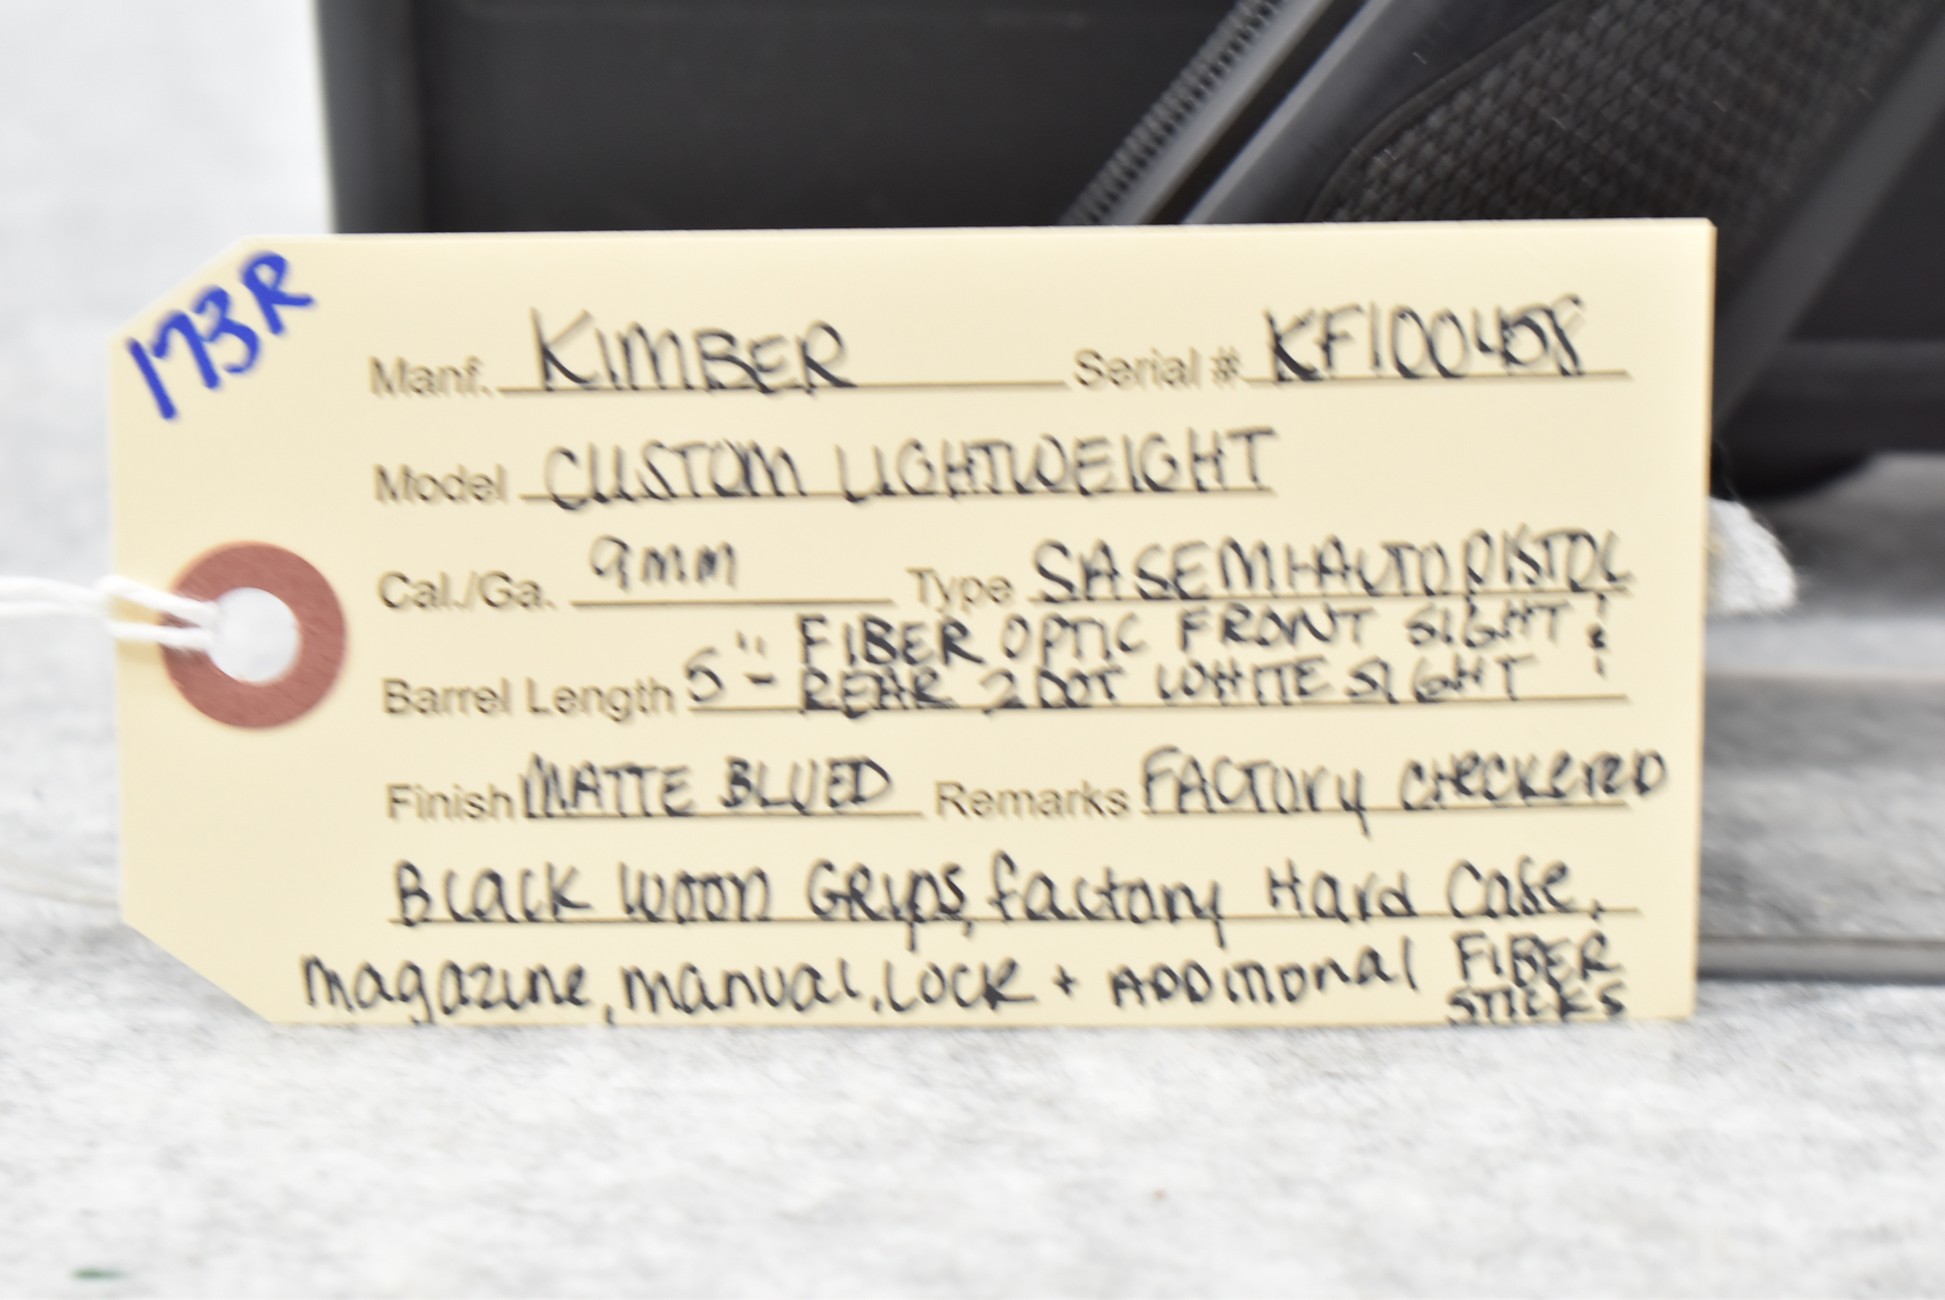 173R
Manf. KIMBER Serial # KF100458
Model CUSTOM LIGHTWEIGHT
Cal./Ga. 9mm Type SA SEMI-AUTO PISTOL
Barrel Length 5" - FIBER OPTIC FRONT SIGHT &
REAR 2 DOT WHITE SIGHT
Finish MATTE BLUED Remarks FACTORY CHECKERED
Black WOOD GRIPS, factory Hard Case,
magazine, manual, LOCK + ADDITIONAL FIBER
STICKS